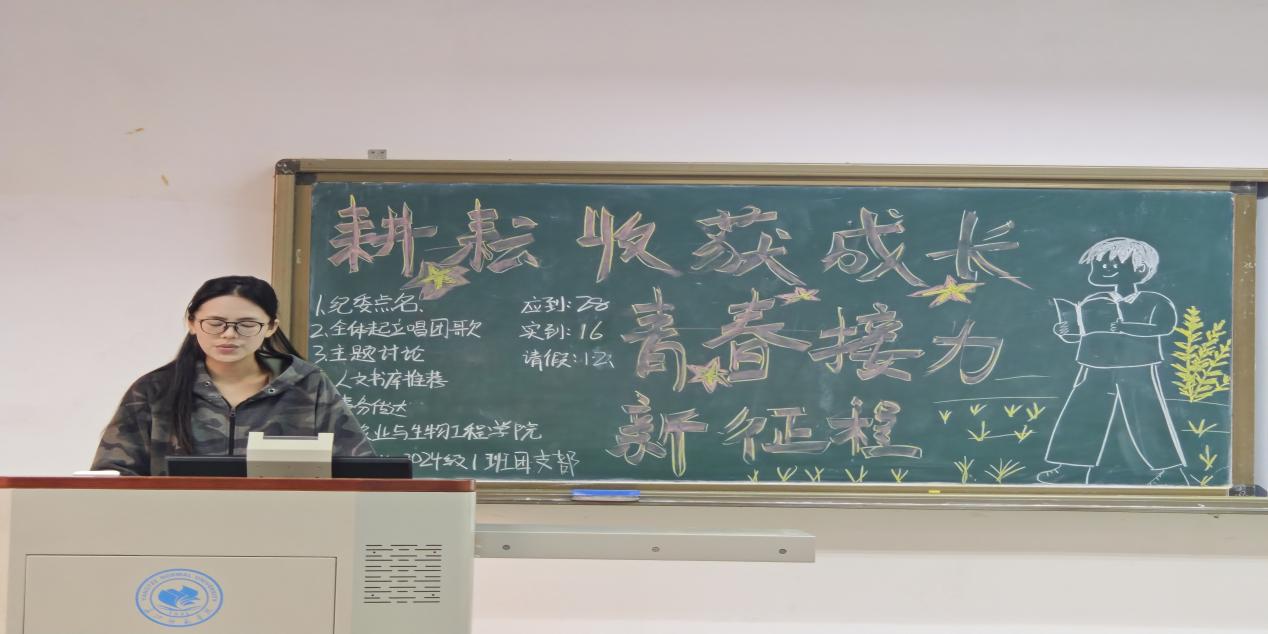 耕耘收获成长
青春接力
新征程
1.纪委点名
2.全体起立唱团歌
3.主题讨论
人文书库推荐
传达
业与生物工程学院
2024级1班团支部
应到:28
实到:16
请假:12
YANGTZE NORMAL UNIVERSITY